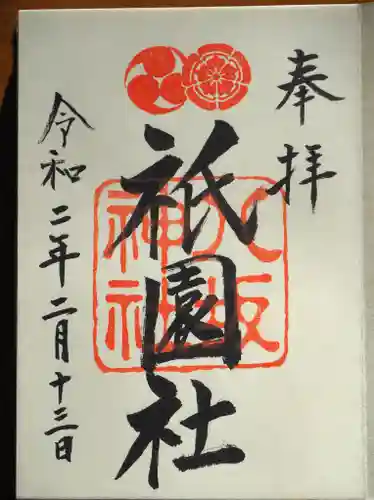 奉拝
八坂神社
祇園社
令和二年二月十三日